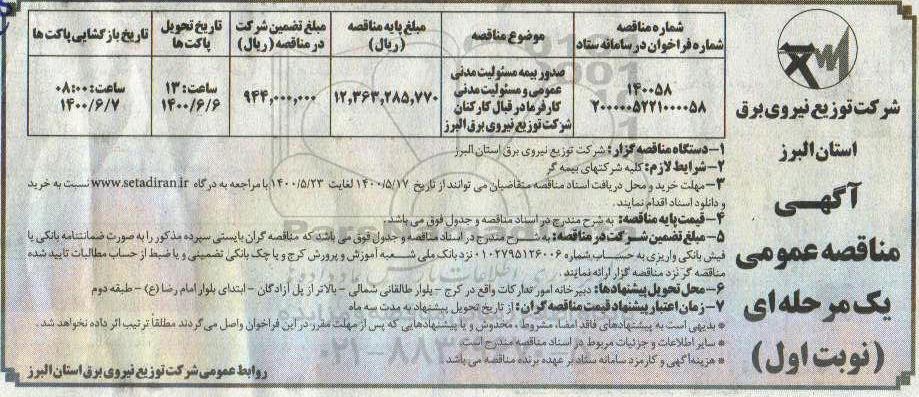 شرکت توزیع نیروی برق
استان البرز
آگهی
مناقصه عمومی
یک مرحله ای
(نوبت اول)
شماره مناقصه
شماره فراخوان در سامانه ستاد
موضوع مناقصه
مبلغ پایه مناقصه
(ریال)
مبلغ تضمین شرکت
در مناقصه (ریال)
تاریخ تحویل
پاکت ها
تاریخ بازگشایی پاکت ها
۱۴۰۰۵۸
۲۰۰۰۰۰۵۲۲۱۰۰۰۰۵۸
صدور بیمه مسئولیت مدنی
عمومی و مسئولیت مدنی
کارفرما در قبال کارکنان
شرکت توزیع نیروی برق البرز
۱۲,۳۶۳,۲۸۵,۷۷۰
۹۴۴,۰۰۰,۰۰۰
ساعت: ۱۳
۱۴۰۰/۶/۶
ساعت: ۰۸:۰۰
۱۴۰۰/۶/۷
۱- دستگاه مناقصه گزار: شرکت توزیع نیروی برق استان البرز
۲- شرایط لازم: کلیه شرکتهای بیمه گر
۳- مهلت خرید و محل دریافت اسناد مناقصه متقاضیان می توانند از تاریخ ۱۴۰۰/۵/۱۷ لغایت ۱۴۰۰/۵/۲۳ با مراجعه به درگاه www.setadiran.ir نسبت به خرید
و دانلود اسناد اقدام نمایند.
۴- قیمت پایه مناقصه: به شرح مندرج در اسناد مناقصه و جدول فوق می باشد.
۵- مبلغ تضمین شرکت در مناقصه: به شرح مندرج در اسناد مناقصه و جدول فوق می باشد که مناقصه گران بایستی سپرده مذکور را به صورت ضمانتنامه بانکی یا
فیش بانکی واریزی به حساب شماره ۰۱۰۲۷۹۵۱۲۶۰۰۶ نزد بانک ملی شعبه آموزش و پرورش کرج و یا چک بانکی تضمینی و یا ضبط از حساب مطالبات تایید شده
مناقصه گر نزد مناقصه گزار ارائه نمایند.
۶- محل تحویل پیشنهادها: دبیرخانه امور تدارکات واقع در کرج - بلوار طالقانی شمالی - بالاتر از پل آزادگان - ابتدای بلوار امام رضا (ع) - طبقه دوم
۷- زمان اعتبار پیشنهاد قیمت مناقصه گران: از تاریخ تحویل پیشنهاد به مدت سه ماه
* بدیهی است به پیشنهادهای فاقد امضاء، مشروط، مخدوش و یا پیشنهادهایی که پس از مهلت مقرر در این فراخوان واصل می گردند مطلقا ترتیب اثر داده نخواهد شد.
* سایر اطلاعات و جزئیات مربوط در اسناد مناقصه مندرج است
* هزینه آگهی و کارمزد سامانه ستاد بر عهده برنده مناقصه می باشد
روابط عمومی شرکت توزیع نیروی برق استان البرز